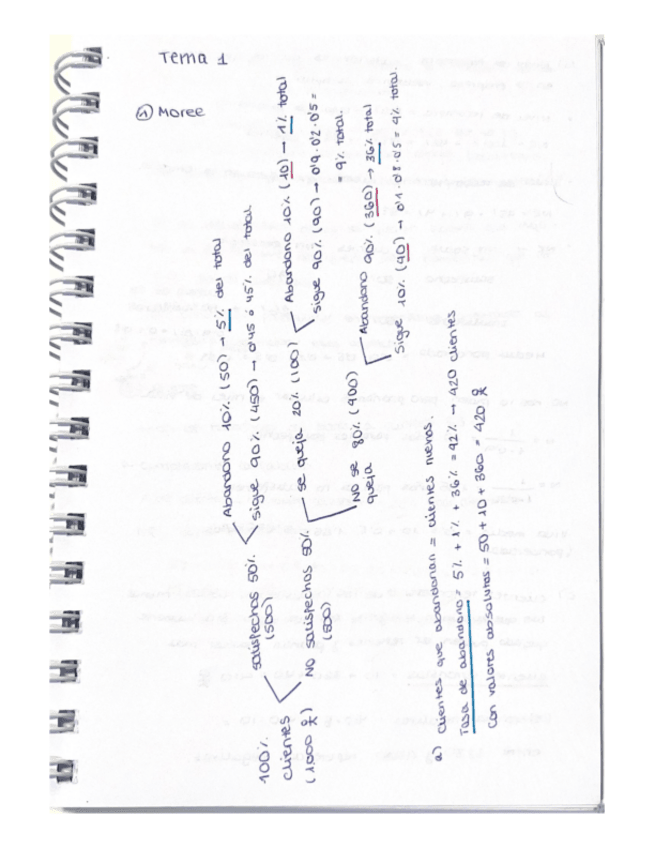 Tema 1
① Moree
100%
clientes
(1000 q)
satisfechos 50%
(500)
Abandono 10% (50) → 5% del total
sigue 90% (450) → 0'45 = 45% del total
No satisfechos 50%
(500)
se queja 20% (100)
Abandono 10% (10) → 1% total
sigue 90% (90) → 0'9·0'2·0'5 =
= 9% total.
No se 80% (400)
queja
Abandono 90% (360) → 36% total
sigue 10% (40) → 0'1·0'8·0'5 = 4% total.
a) clientes que abandonan = clientes nuevos.
Tasa de abandono = 5% + 1% + 36% = 42% → 420 clientes
con valores absolutos = 50 + 10 + 360 = 420 q